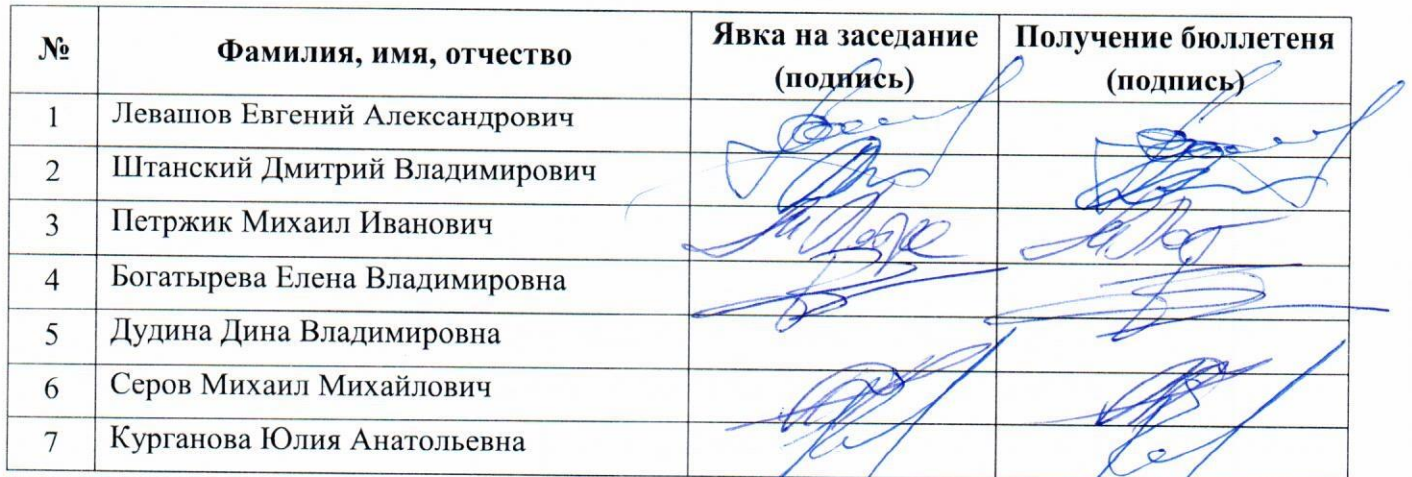 № Фамилия, имя, отчество Явка на заседание (подпись) Получение бюллетеня (подпись)
1 Левашов Евгений Александрович
2 Штанский Дмитрий Владимирович
3 Петржик Михаил Иванович
4 Богатырева Елена Владимировна
5 Дудина Дина Владимировна
6 Серов Михаил Михайлович
7 Курганова Юлия Анатольевна